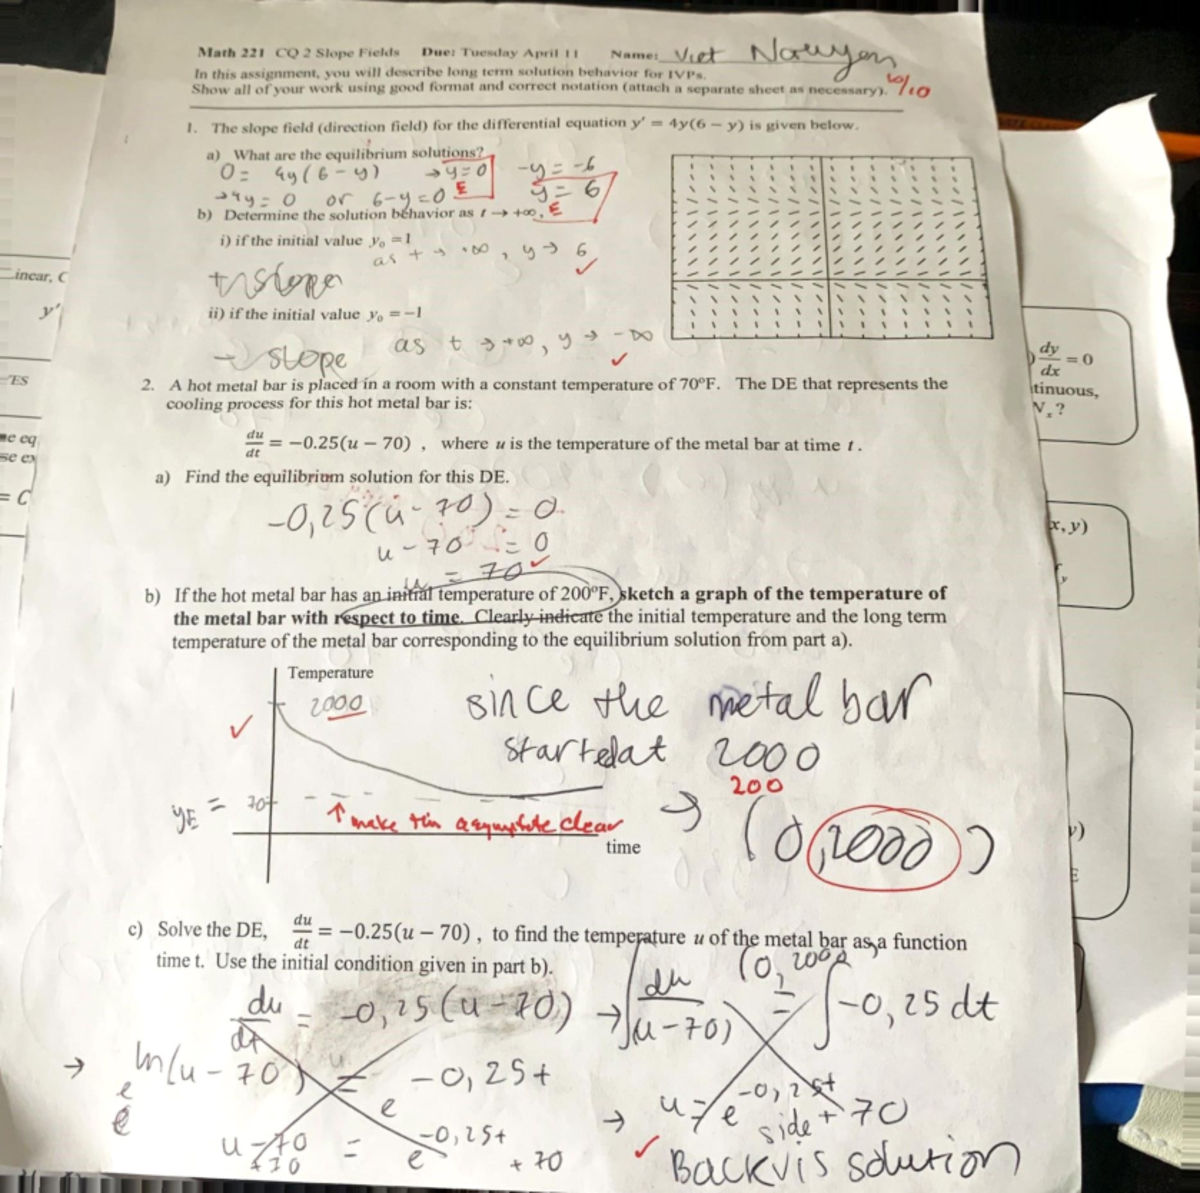 Math 221 CQ 2 Slope Fields Due: Tuesday April 11 Name: Viet Nguyen
In this assignment, you will describe long term solution behavior for IVPs.
Show all of your work using good format and correct notation (attach a separate sheet as necessary). 10/10
1. The slope field (direction field) for the differential equation y' = 4y(6 − y) is given below.
a) What are the equilibrium solutions?
0 = 4y(6-y) → y=0 -y = -6
→ 4y = 0 or 6-y=0 E y = 6
b) Determine the solution behavior as t → +∞, E
i) if the initial value y₀ = 1
as t → +∞, y → 6
slope
ii) if the initial value y₀ = −1
as t → +∞, y → -∞
- slope
2. A hot metal bar is placed in a room with a constant temperature of 70°F. The DE that represents the
cooling process for this hot metal bar is:
du/dt = −0.25(u − 70) , where u is the temperature of the metal bar at time t.
a) Find the equilibrium solution for this DE.
-0,25(u-70) = 0
u - 70 = 0
u = 70
b) If the hot metal bar has an initial temperature of 200°F, sketch a graph of the temperature of
the metal bar with respect to time. Clearly indicate the initial temperature and the long term
temperature of the metal bar corresponding to the equilibrium solution from part a).
Temperature
2000
since the metal bar
started at 2000
200
yE = 70
make asymptote clear
→ (0,2000)
time
c) Solve the DE, du/dt = −0.25(u − 70) , to find the temperature u of the metal bar as a function
time t. Use the initial condition given in part b).
(0, 2000
du/dt = -0,25(u-70) → ∫ du/(u-70) = ∫-0,25 dt
→ ln(u-70) = -0,25t
e e
→ u = e -0,25t + 70
u-70 = e -0,25t + 70
+70
side
Back vis solution
inear, C
y'
ES
= C
dy/dx = 0
tinuous,
x, y)